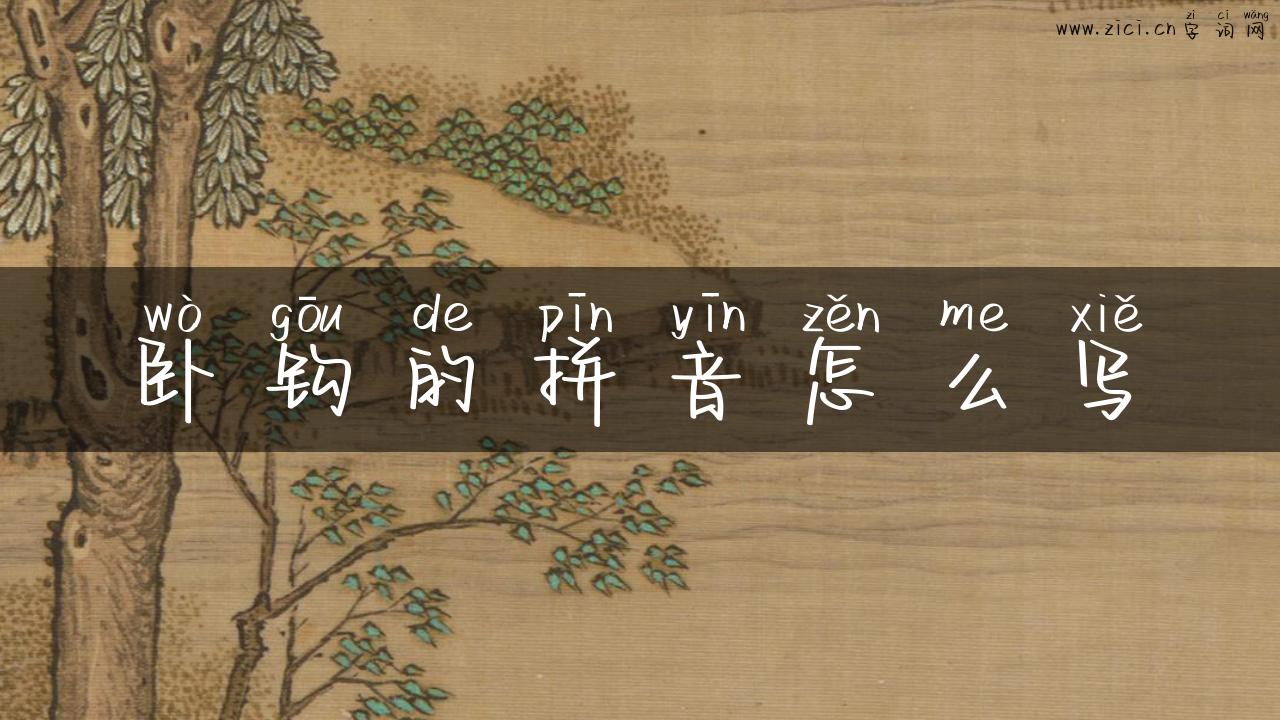 zì cí wǎng
www.zici.cn 字词网
wò gōu de pīn yīn zěn me xiě
卧钩的拼音怎么写